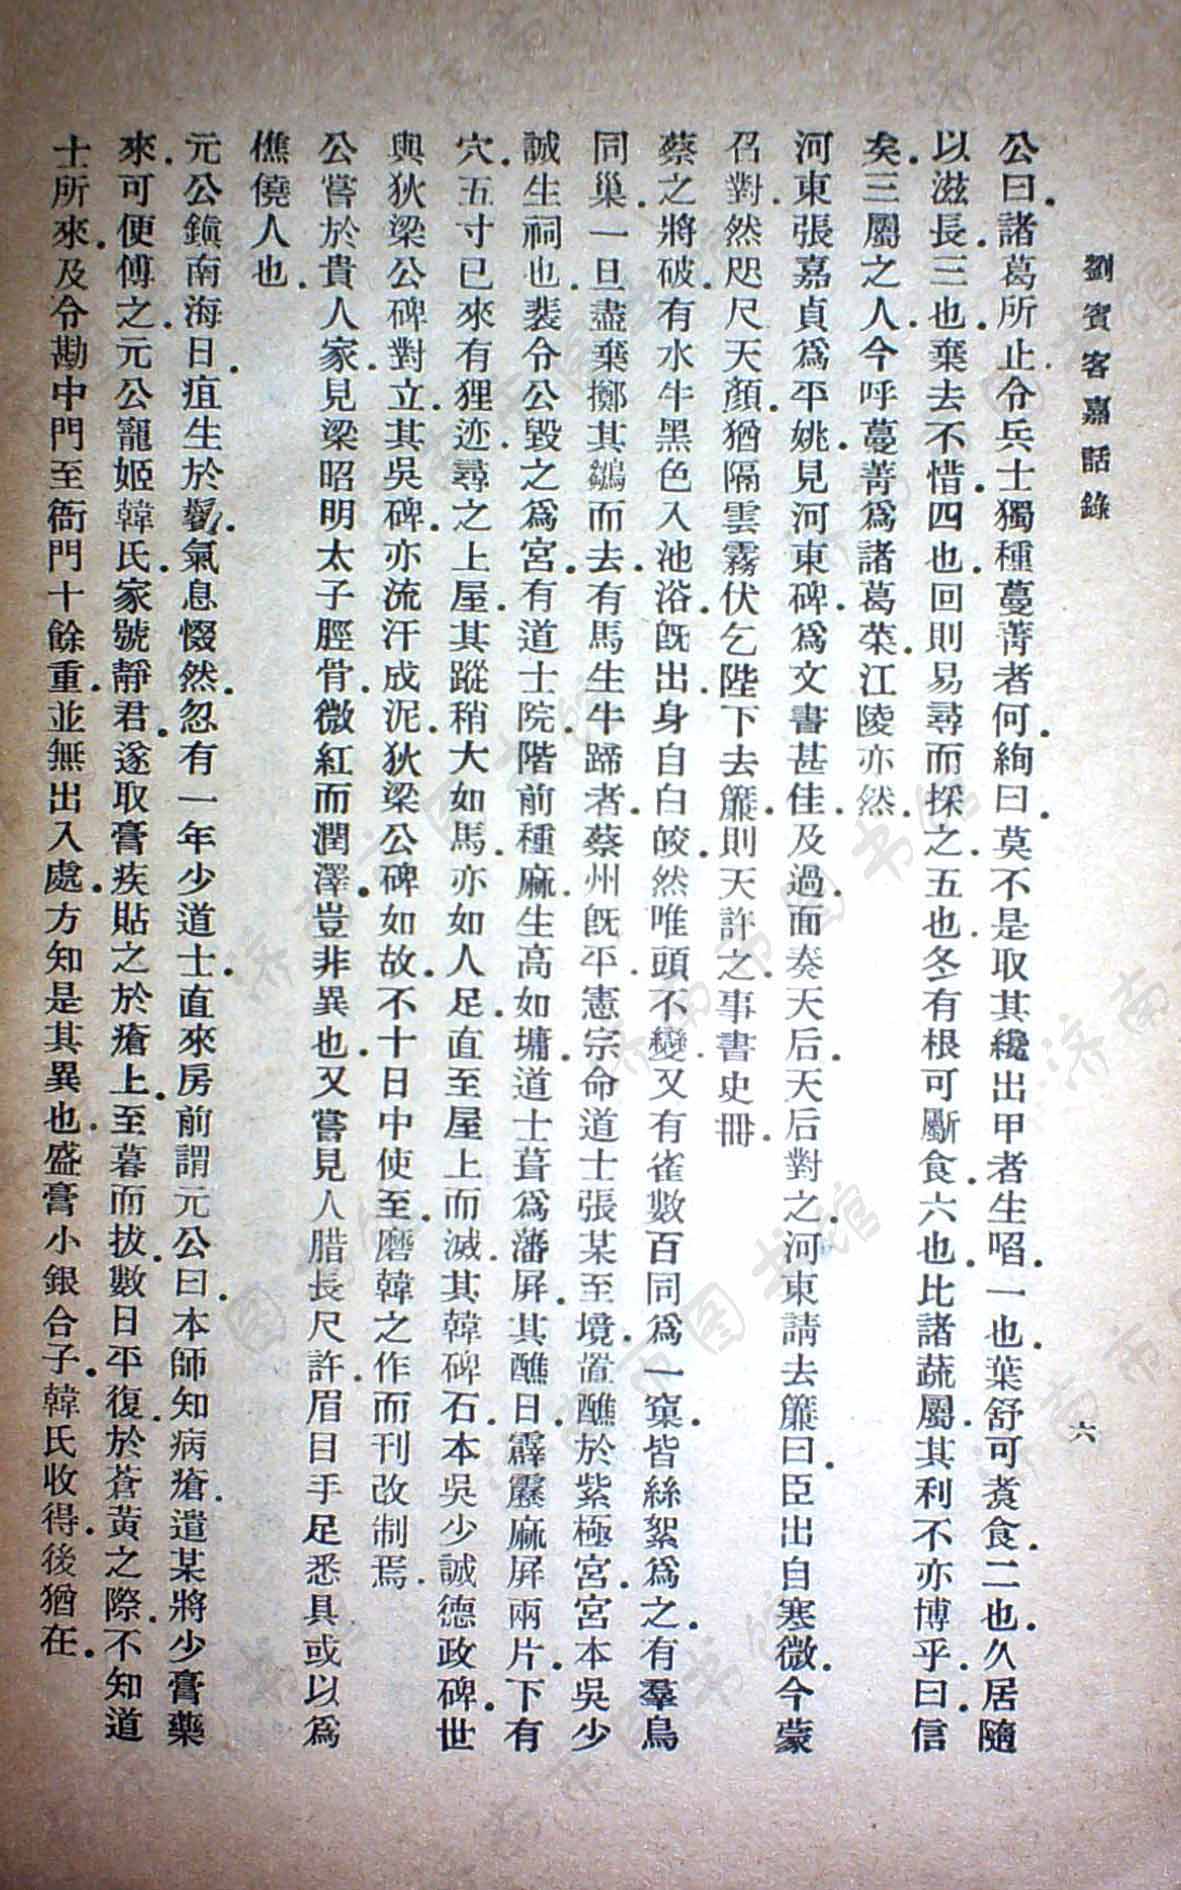 劉賓客嘉話錄
六
公曰.諸葛所止.令兵士獨種蔓菁者何.絢曰.莫不是取其纔出甲者生啗.一也.葉舒可煑食.二也.久居隨
以滋長.三也.棄去不惜.四也.回則易尋而採之.五也.冬有根可斸食.六也.比諸蔬屬.其利不亦博乎.曰.信
矣.三屬之人.今呼蔓菁爲諸葛菜.江陵亦然.
河東張嘉貞爲平姚.見河東碑.爲文書甚佳.及過.面奏天后.天后對之.河東請去簾.曰.臣出自寒微.今蒙
召對.然咫尺天顏.猶隔雲霧.伏乞陛下去簾.則天許之.事書史冊.
蔡之將破.有水牛黑色入池浴.旣出.身自白.皎然唯頭不變.又有雀數百同爲一窠.皆絲絮爲之.有羣鳥
同巢.一旦盡棄擲其鶵而去.有馬生牛蹄者.蔡州旣平.憲宗命道士張某至境.置醮於紫極宮.宮本吳少
誠生祠也.裴令公毀之爲宮.有道士院.階前種麻.生高如墉.道士葺爲藩屏.其醮日.霹靂麻屏兩片.下有
穴.五寸已來.有狸迹.尋之上屋.其蹤稍大如馬.亦如人足.直至屋上而滅.其韓碑石.本吳少誠德政碑.世
與狄梁公碑對立.其吳碑.亦流汗成泥.狄梁公碑如故.不十日中使至.磨韓之作而刊改制焉.
公嘗於貴人家.見梁昭明太子脛骨.微紅而潤澤.豈非異也.又嘗見人腊長尺許.眉目手足悉具.或以爲
僬僥人也.
元公鎭南海日.疽生於鬢.氣息惙然.忽有一年少道士.直來房前.謂元公曰.本師知病瘡.遣某將少膏藥
來.可便傅之.元公寵姬韓氏.家號靜君.遂取膏疾貼之於瘡上.至暮而拔.數日平復.於蒼黃之際.不知道
士所來.及令勘中門至衙門十餘重.並無出入處.方知是其異也.盛膏小銀合子.韓氏收得.後猶在.